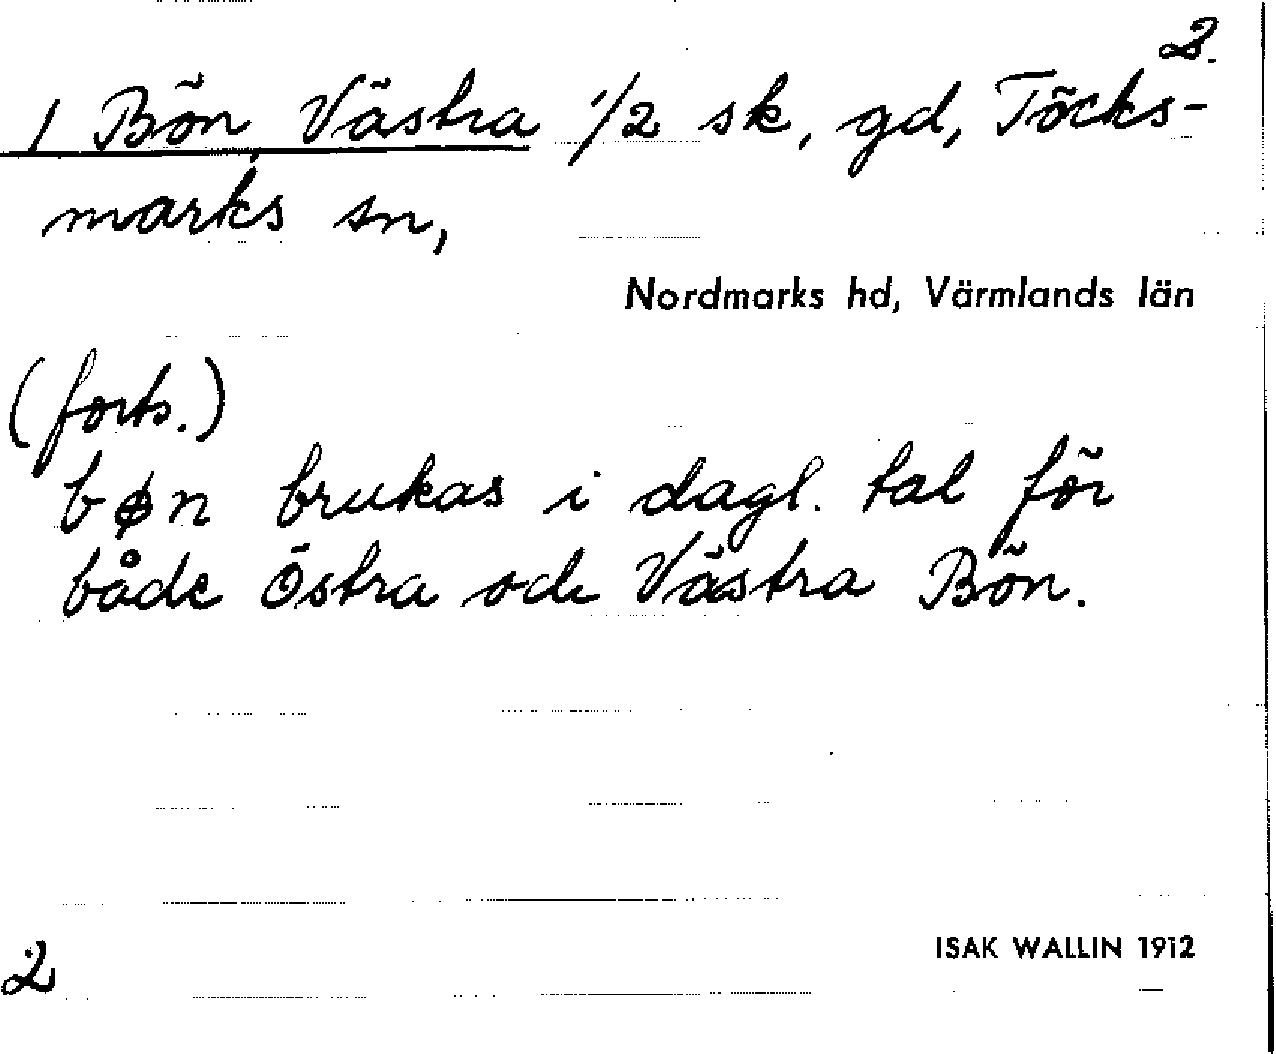 2.
1 Bön, Västra 1/2 sk, gd, Töcks-
marks sn,
Nordmarks hd, Värmlands län
(forts.)
bøn brukas i dagl. tal för
både Östra och Västra Bön.
2
ISAK WALLIN 1912